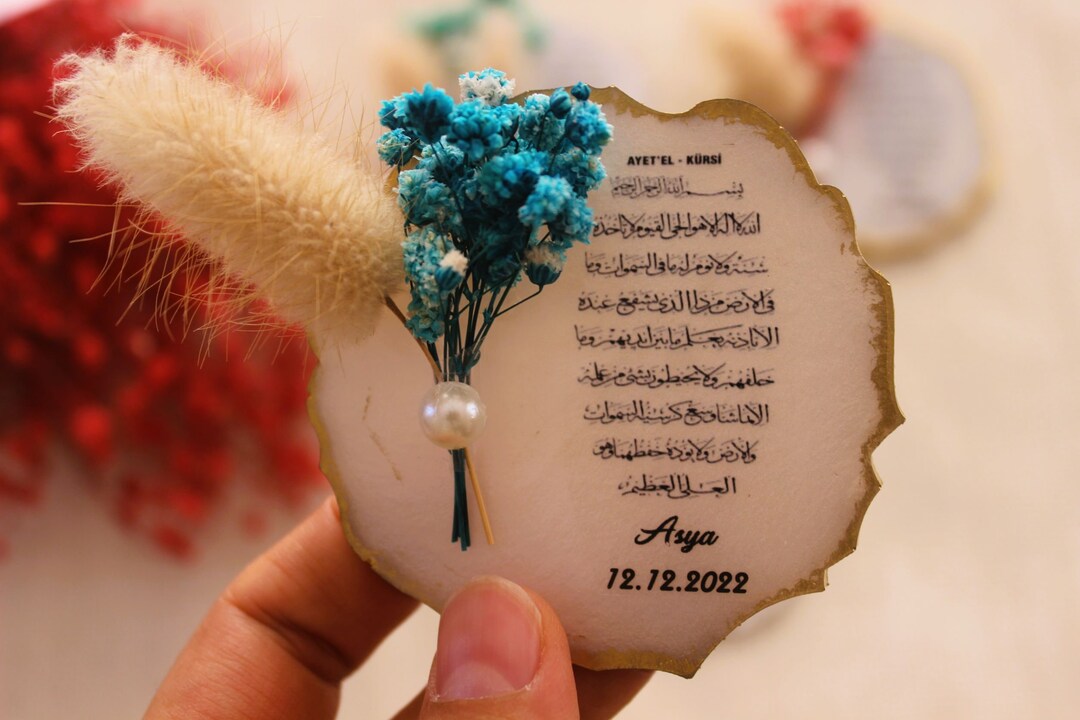 AYET'EL - KÜRSİ
بسم الله الرحمن الرحيم
الله لا اله الا هو الحي القيوم لا تأخذه
سنة ولا نوم له ما في السموات وما
في الارض من ذا الذي يشفع عنده
الا باذنه يعلم ما بين ايديهم وما
خلفهم ولا يحيطون بشئ من علمه
الا بما شاء وسع كرسيه السموات
والارض ولا يؤده حفظهما وهو
العلي العظيم
Asya
12.12.2022